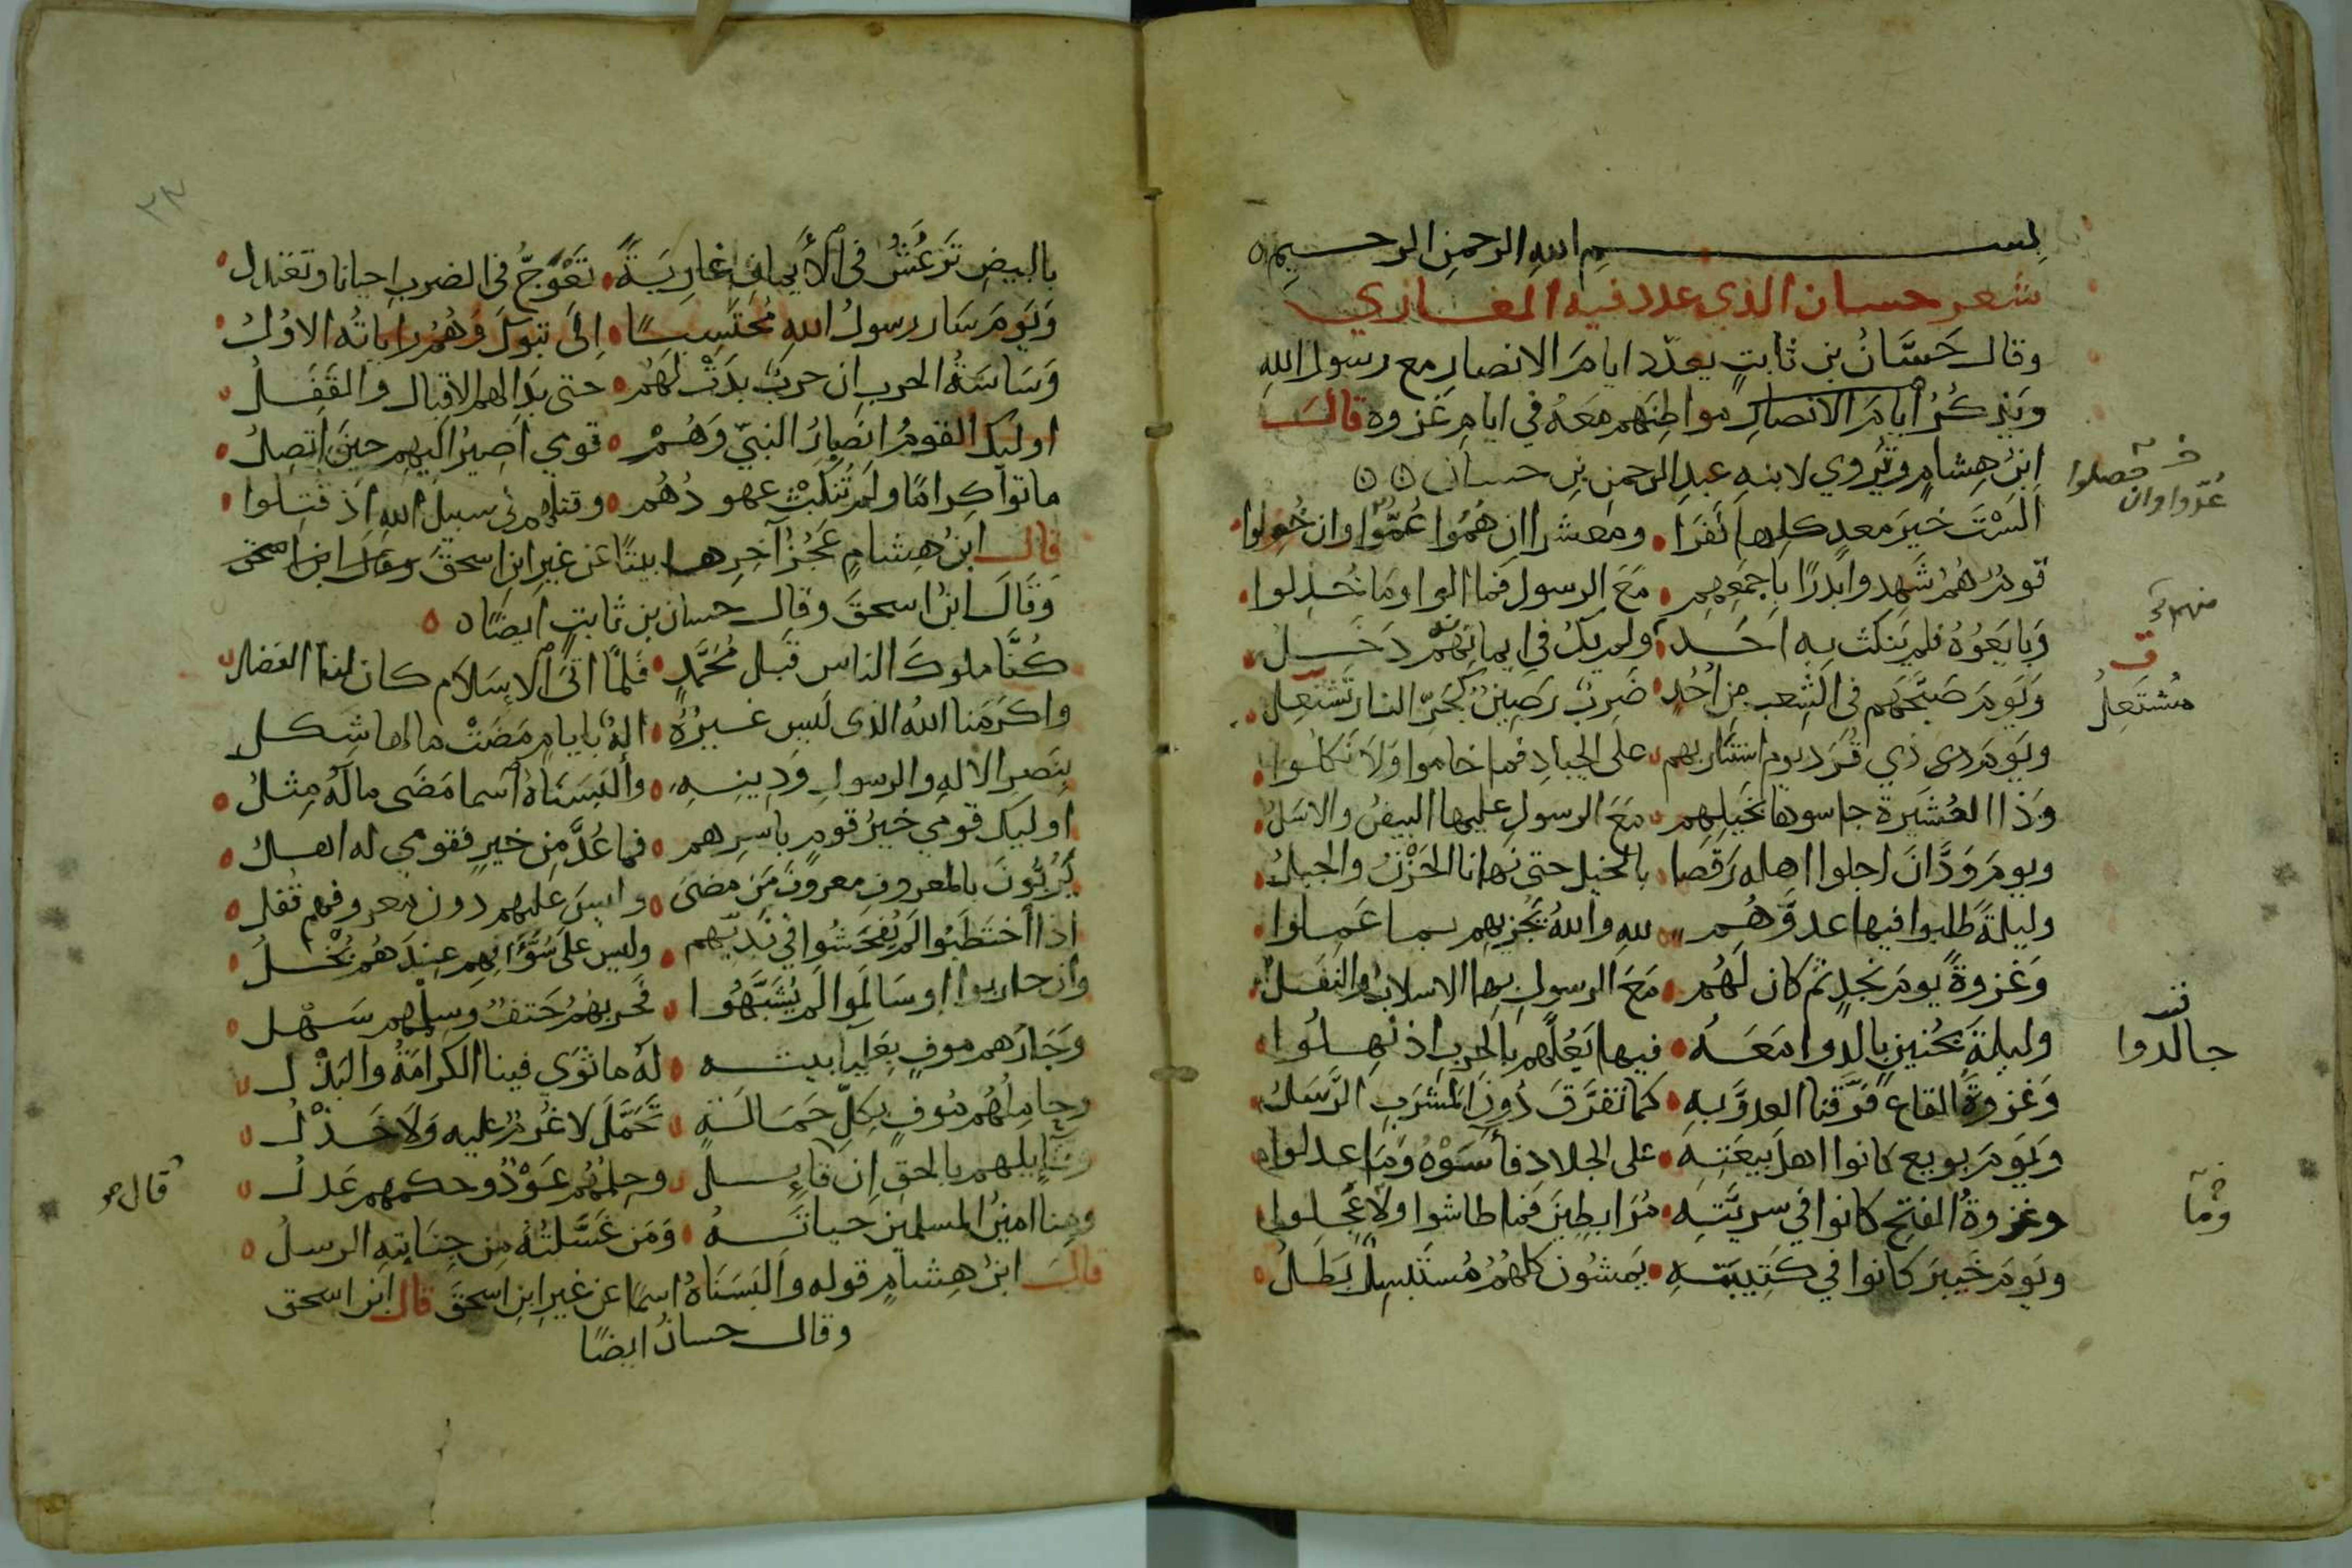 بسم الله الرحمن الرحيم
شعر حسان الذي عدد فيه المغازي
وقال حَسَّانُ بن ثابتٍ يعدّد ايامَ الانصارِ مع رسول اللهِ
ويَذكُرُ أيامَ الانصارِ مواطِنَهم معَهُ في ايامِ غزوه قالَ
ابنُ هِشامٍ وتُروي لابنهِ عبدِ الرحمنِ بنِ حسان
ألَسْتَ خيرَ معدٍ كلِها نَفَرَا ومعشرا ان هُمُوا عُمُّوا وان حُصِلوا
خ حصلوا
عُدّوا وان
قومٌ هُمُ شَهِدوا بَدرًا بأجمَعِهِم مَعَ الرسولِ فما الوا ومَا خُذِلوا
وَبايَعُوْهُ فلم يَنكُث بِه احَد منهم ولم يكُ في ايمانِهم دَخَلُ
وَيَومَ صَبَّحَهم في الشِعبِ مِن أُحُدٍ ضَربٌ رَصِينٌ كَحَرِّ النار تَشتَعِل
مُشتَعِلُ
ويَومَ ذي قَرَد يوم استثار بهم على الجيادِ فما خاموا وَلَا نَكَلُوا
وَذا العُشَيرة جاسوها بخَيلِهِم مَعَ الرسولِ عليها البيضُ والاسَلُ
ويومَ وَدَّانَ اجلوا اهله رَقَصَا بالخيل حتى نهانا الحَزْنُ والجبلُ
وليلةً طلبوا فيها عدوَّهُم للهِ واللهُ يَجزيهِم بما عَمِلوا
وَغزوةً يومَ نَجدٍ ثم كان لَهُم مَعَ الرسولِ بها الاسلابُ والنَفَلُ
وليلةً بحُنَينٍ جالدوا مَعَهُ فيها يَعُلُّهم بالحربِ اذ نَهِلُوا
جالدوا
وَغزوةَ القاعِ فَرَّقنا العدوَّ بهِ كما تفرَّقَ دُونَ المَشرَبِ الرَّسَلُ
وَيَومَ بويع كانوا اهلَ بيعَتِهِ على الجلادِ فآسَوْهُ ومَا عدلوا
وغزوةُ الفتحِ كانوا في سريَّتِهِ مُرَابِطِينَ فما طاشوا ولا عَجِلوا
وما
ويَومَ خَيبرَ كانوا في كَتِيبَتِهِ يَمشُون كلهُمُ مُستَبسِلٌ بَطَلُ
بالبيضِ تَرعُشُ في الأيمانِ عاريَةً تَعْوَجُّ في الضربِ احيانا وتعتدل
وَيَومَ سَار رسولُ اللهِ مُحتَسِبًا اِلَى تبوكَ وَهُم راياتُه الاوُلُ
وَسَاسَةُ الحربِ ان حربٌ بدَتْ لَهُم حتى بَدَا لهم الاقبال والقَفَلُ
اوليك القومُ انصارُ النبيّ وَهُمْ قومي اَصِيرُ اليهِم حينَ اتصِلُ
ماتوا كِرامًا ولم تُنكَثْ عهودُهُم وقتلهم في سبيل الله اذ قُتِلوا
قال ابنُ هِشامٍ عَجُزُ آخِرِها بيتًا عن غيرِ ابنِ اسحقَ
وَقَالَ ابنُ اسحقَ وقال حسان بن ثابتٍ ايضًا
كُنَّا ملوكَ الناسِ قَبلَ مُحَمَّدٍ فَلمَّا اتَى الاسلَام كان لنا الفضل
واكرَمَنا اللهُ الذى لَيسَ غَيرُهُ الهٌ بايامٍ مَضَتْ ما لها شكل
بنَصرِ الالهِ والرسولِ وَدِينِهِ وألبَسَنَاهُ اسما مَضَى مالَهُ مِثلُ
اوليك قومي خيرُ قومٍ باسرِهم فما عُدَّ مِن خيرٍ فقومي له اهل
يَرُبُّونَ بالمعروفِ معروفَ مَن مضىَ وليسَ عليهم دون معروفهم قُفل
اذا اُختَطَبُوا لم يُفحِشُوا في نَديّهم وليس على سُؤَّالِهِم عِندَهُم بُخْلُ
وان حاربوا او سَالَموا لم يُشَبَّهُوا فحربهُمُ حَتفٌ وسِلمهم سَهْل
وَجَارُهم موفٍ بعَليَا بيته لَهُ ما ثَوَى فينا الكرامَةُ والبَذْل
وحامِلُهُم مُوفٍ بكلِّ حَمَالَةٍ تَحَمَّلَ لا غُرمٌ عليه وَلَا خَذْلُ
وقايلهم بالحقِ اِن قال قايِل وحِلمُهُم عَوْدٌ وحكمهم عَدل
قال
ومِنا امينُ المسلمين حياتَهُ وَمَن غسَّلتْهُ مِن جِنَابتِهِ الرسلُ
قالَ ابنُ هِشامٍ قوله وَالبَسَنَاهُ اسمًا عن غيرِ ابنِ اسحقَ قال ابن اسحق
وقال حسانُ ايضًا